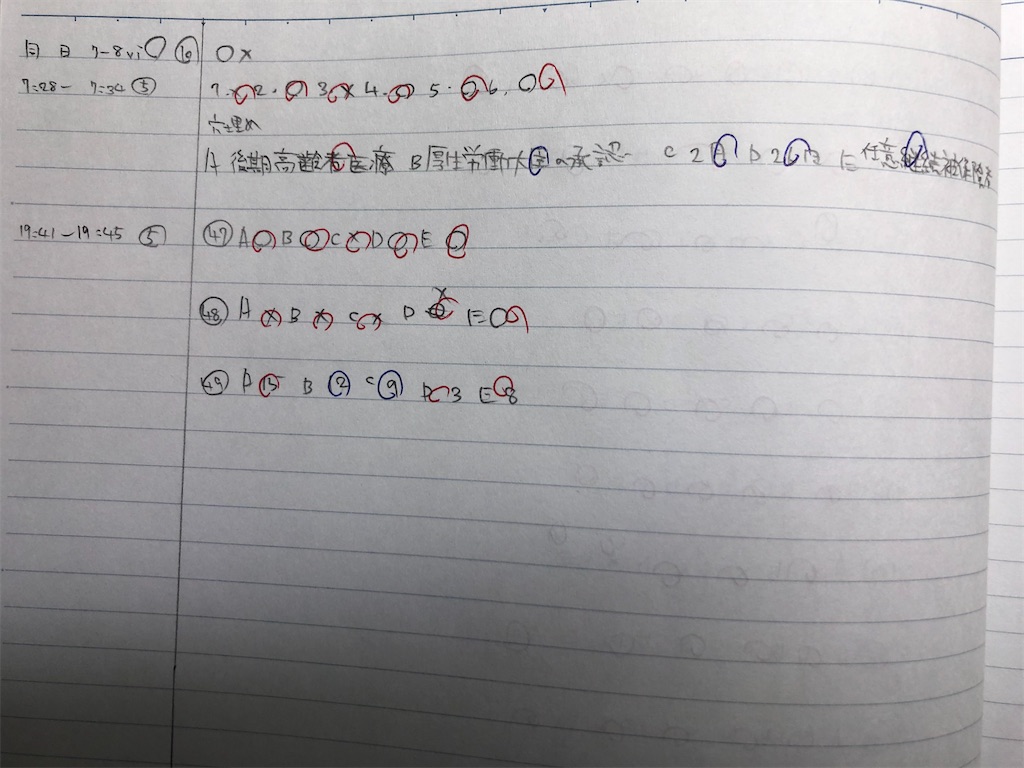 同 日 7-8vi〇 ⑩ 〇×
7:28- 7:34 ⑤ 1. 2. 〇 3. × 4. 〇 5. 〇 6. 〇
穴埋め
A 後期高齢者医療 B 厚生労働大臣の承認 C 2 D 2 E 任意継続被保険者
19:41-19:45 ⑤ ㊼ A 〇 B 〇 C × D 〇 E 〇
㊽ A × B × C × D × E 〇
㊾ A 5 B 2 C 9 D 3 E 8